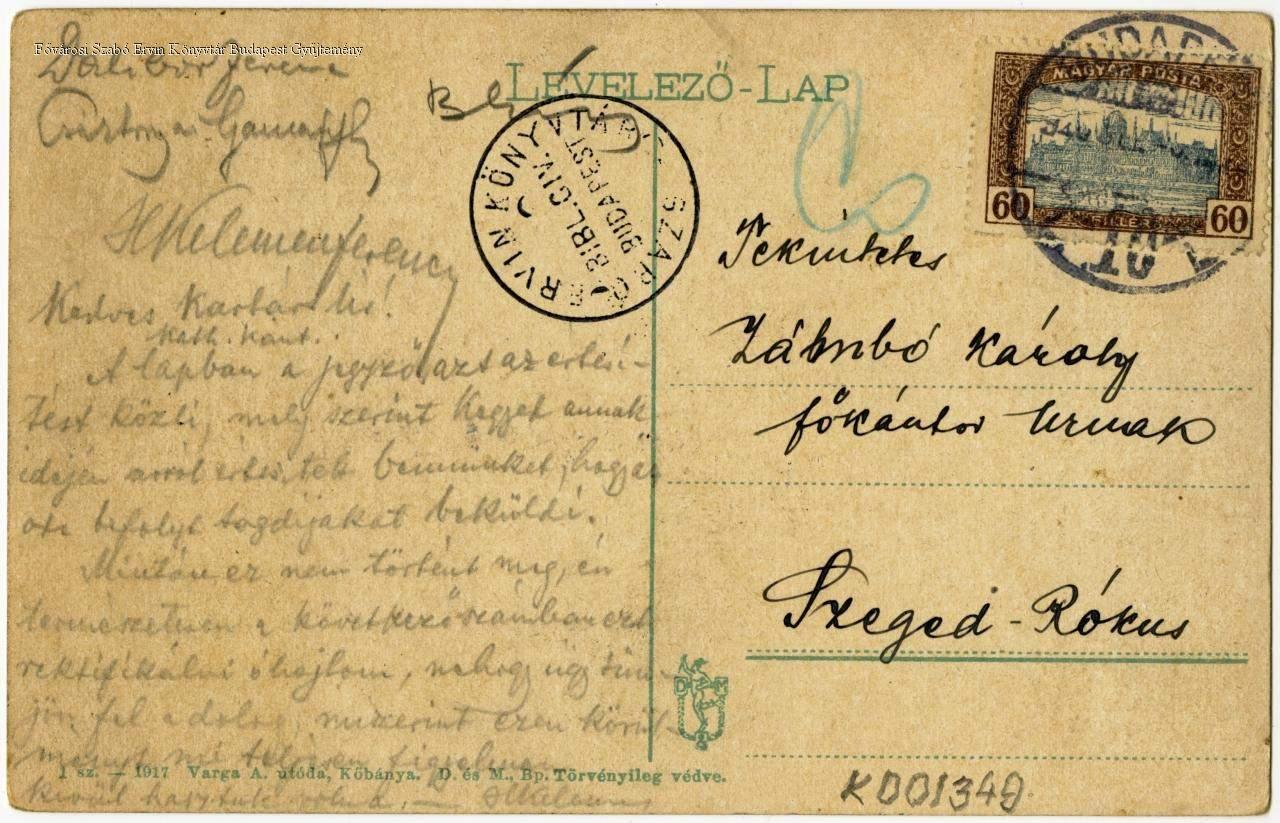 Fővárosi Szabó Ervin Könyvtár Budapest Gyűjtemény
LEVELEZŐ-LAP
SZABÓ ERVIN KÖNYVTÁR
BIBL. CIV.
BUDAPEST
MAGYAR POSTA
60 FILLÉR 60
BUDAPEST
10
Tekintetes
Zámbó Károly
főkántor Urnak
Szeged-Rókus
Kelemen Ferenc
Kedves Kartárs
Kath. Kánt.
A lapban a jegyző azt az értesi-
tést közli, mely szerint Kegyed annak
idején arról értesitett bennünket, hogy az
befolyt tagdijakat beküldi.
Miután ez nem történt meg, én
természetesen a következő számban ezt
rektifikálni óhajtom, nehogy úgy tün-
jön fel a dolog, miszerint ezen körül-
ményt mi teljesen figyelmen
kivül hagytuk volna. —
D M
1 sz. — 1917 Varga A. utóda, Kőbánya. D. és M., Bp. Törvényileg védve.
KD01349